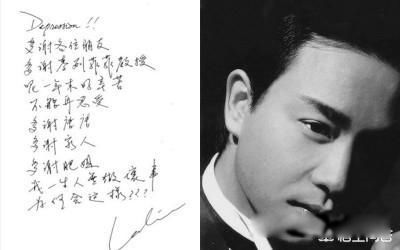 Depression!!
多謝各位朋友
多謝麥列菲菲教授
呢一年來好辛苦
不能再忍受
多謝唐唐
多謝家人
多謝肥姐
我一生人無做壞事
為何會這樣???
问答